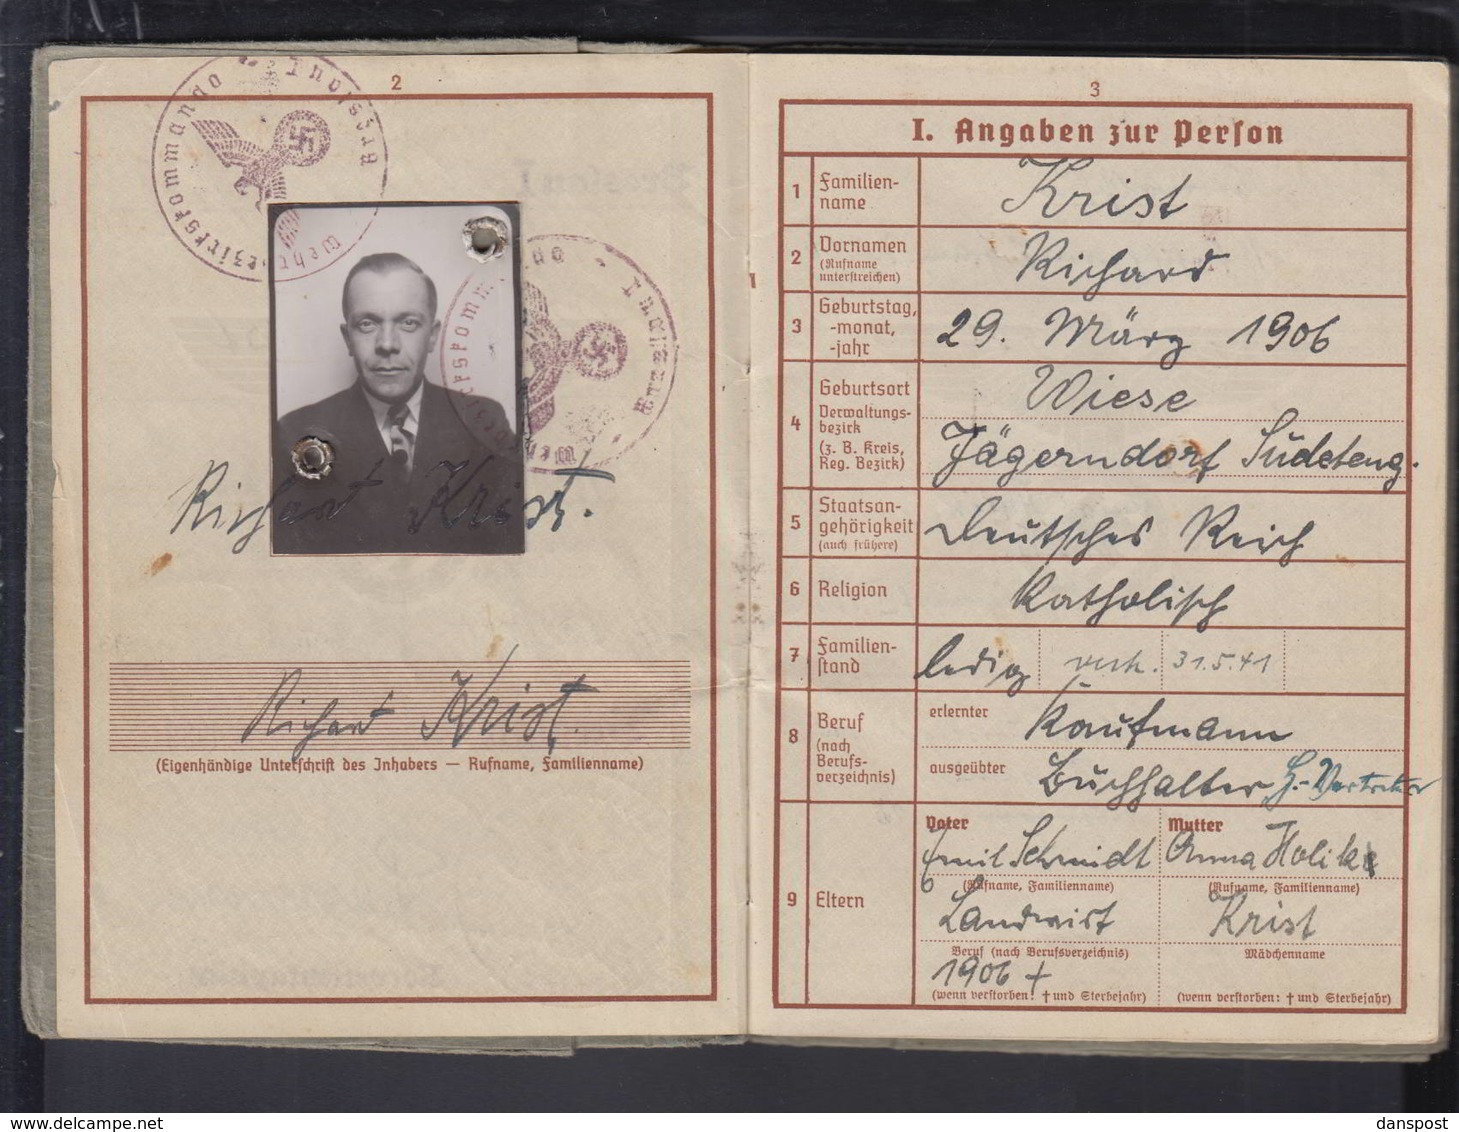 2
Wehrbezirkskommando Breslau I
Wehrbezirkskommando Breslau I
Richard Krist.
Richard Krist.
(Eigenhändige Unterschrift des Inhabers — Rufname, Familienname)
3
I. Angaben zur Person
1 Familien-
name
Krist
2 Vornamen
(Rufname
unterstreichen)
Richard
3 Geburtstag,
-monat,
-jahr
29. März 1906
4 Geburtsort
Verwaltungs-
bezirk
(z. B. Kreis,
Reg. Bezirk)
Wiese
Jägerndorf Sudeteng.
5 Staatsan-
gehörigkeit
(auch frühere)
Deutsches Reich
6 Religion
Katholisch
7 Familien-
stand
ledig verh. 31.5.41
8 Beruf
(nach
Berufs-
verzeichnis)
erlernter
Kaufmann
ausgeübter
Buchhalter H.-Vertreter
9 Eltern
Vater
Emil Schmidt
(Rufname, Familienname)
Landwirt
Beruf (nach Berufsverzeichnis)
1906 +
(wenn verstorben: † und Sterbejahr)
Mutter
Anna
(Rufname, Familienname)
Krist
Mädchenname
(wenn verstorben: † und Sterbejahr)
danspost